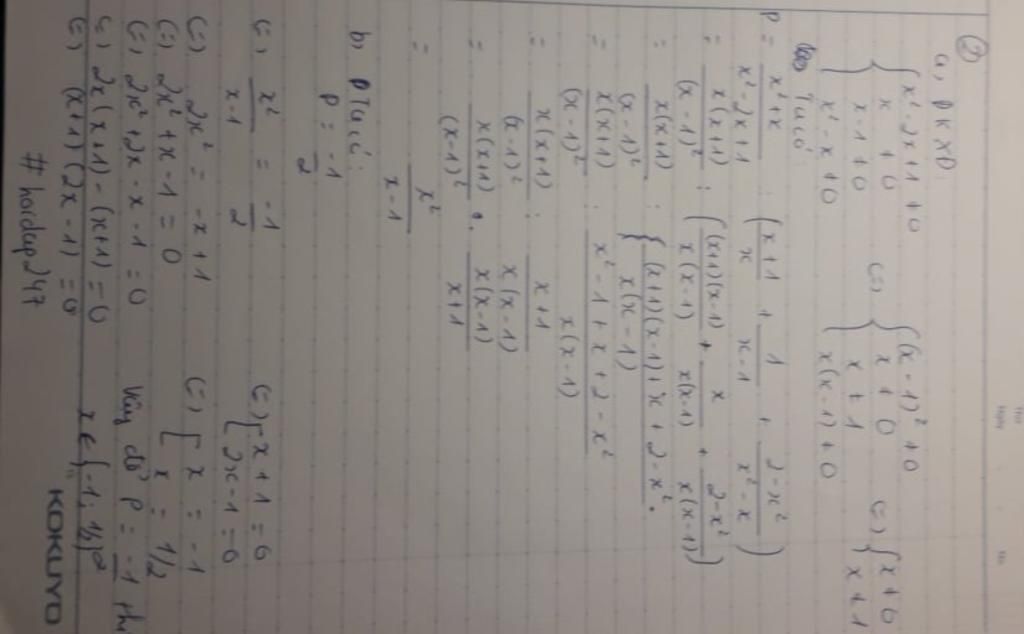 ②
a, ĐKXĐ
{ x² - 2x + 1 ≠ 0
x ≠ 0
x - 1 ≠ 0
x² - x ≠ 0
(=) { (x - 1)² ≠ 0
x ≠ 0
x ≠ 1
x(x - 1) ≠ 0
(=) { x ≠ 0
x ≠ 1
Ta có:
P = x² + x / x² - 2x + 1 : ( x + 1 / x + 1 / x - 1 + 2 - x² / x² - x )
= x(x + 1) / (x - 1)² : ( (x+1)(x-1) / x(x-1) + x / x(x-1) + 2 - x² / x(x-1) )
= x(x+1) / (x - 1)² : { (x+1)(x-1) + x + 2 - x² / x(x - 1) }
= x(x+1) / (x - 1)² : x² - 1 + x + 2 - x² / x(x - 1)
= x(x+1) / (x - 1)² : x + 1 / x(x - 1)
= x(x+1) / (x-1)² . x(x-1) / x+1
= x² / x - 1
b) Ta có:
P = -1 / 2
(=) x² / x-1 = -1 / 2
(=) 2x² = -x + 1
(=) 2x² + x - 1 = 0
(=) 2x² + 2x - x - 1 = 0
(=) 2x(x+1) - (x+1) = 0
(=) (x+1)(2x - 1) = 0
(=) [ x + 1 = 0
2x - 1 = 0
(=) [ x = -1
x = 1/2
Vậy để P = -1 / 2 thì
x ∈ { -1; 1/2 }
#hoidap247
KOKUYO